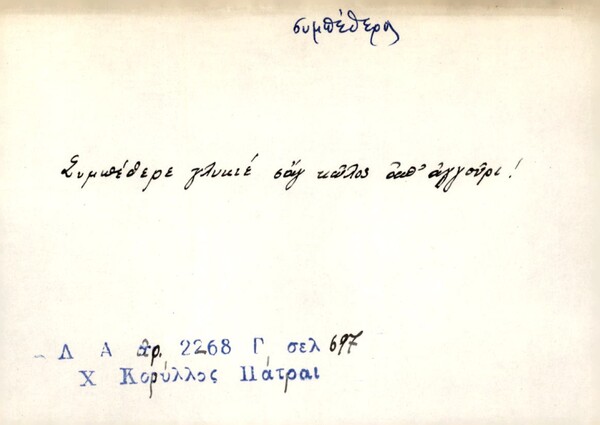 συμπέθερος
Συμπέθερε γλυκιέ σὰν κῶλος ἀπ' ἀγγοῦρι!
Λ Α ἀρ. 2268 Γ σελ 697
Χ Κορύλλος Πάτραι